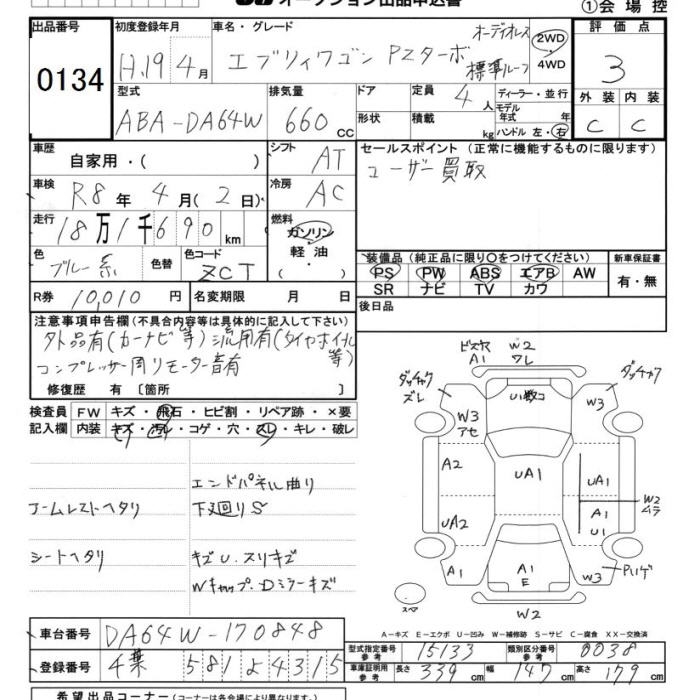 オークション出品申込書
①会場控
出品番号
0134
初度登録年月
H.19 4月
車名・グレード
エブリィワゴン PZターボ
オーディオレス
標準ルーフ
2WD
4WD
評価点
3
外装 内装
C C
型式
ABA-DA64W
排気量
660 CC
ドア
形状
定員 4人
積載 kg
ディーラー・並行
モデル年式 年
ハンドル 左・右
車歴
自家用・( )
シフト AT
セールスポイント (正常に機能するものに限ります)
ユーザー買取
車検 R8年 4月(2日)
冷房 AC
走行 18万1千690km
燃料
ガソリン
軽油・
( )
色 ブルー系
色替
色コード ZCT
装備品 (純正品に限り〇をつけてください)
PS PW ABS エアB AW
SR ナビ TV カワ
新車保証書
有・無
R券 10,010円
名変期限 月 日
後日品
注意事項申告欄 (不具合内容等は具体的に記入して下さい)
外品有(カーナビ等)流用有(タイヤホイル等)
コンプレッサー周リモーター音有
修復歴 有 〔箇所 〕
検査員記入欄
FW キズ・飛石・ヒビ割・リペア跡・×要
内装 キズ・汚レ・コゲ・穴・スレ・キレ・破レ
アームレストヘタリ
シートヘタリ
エンドパネル曲り
下廻りS
キズU.スリキズ
Wキャップ.Dミラーキズ
A1
W2
ワレ
ズレ
W3
アセ
W3
A2
UA1
UA1
UA2
A1
U1
W2
ムラ
A1
A1
E
W3
W2
スペア
A－キズ E－エクボ U－凹み W－補修跡 S－サビ C－腐食 XX－交換済
車台番号 DA64W-170848
登録番号 581 よ 4315
型式指定番号 参考 15133
類別区分番号 参考 0038
車庫証明用 参考 長さ 339cm 幅 147cm 高さ 179cm
希望出品コーナー(コーナーは各会場により異なります)